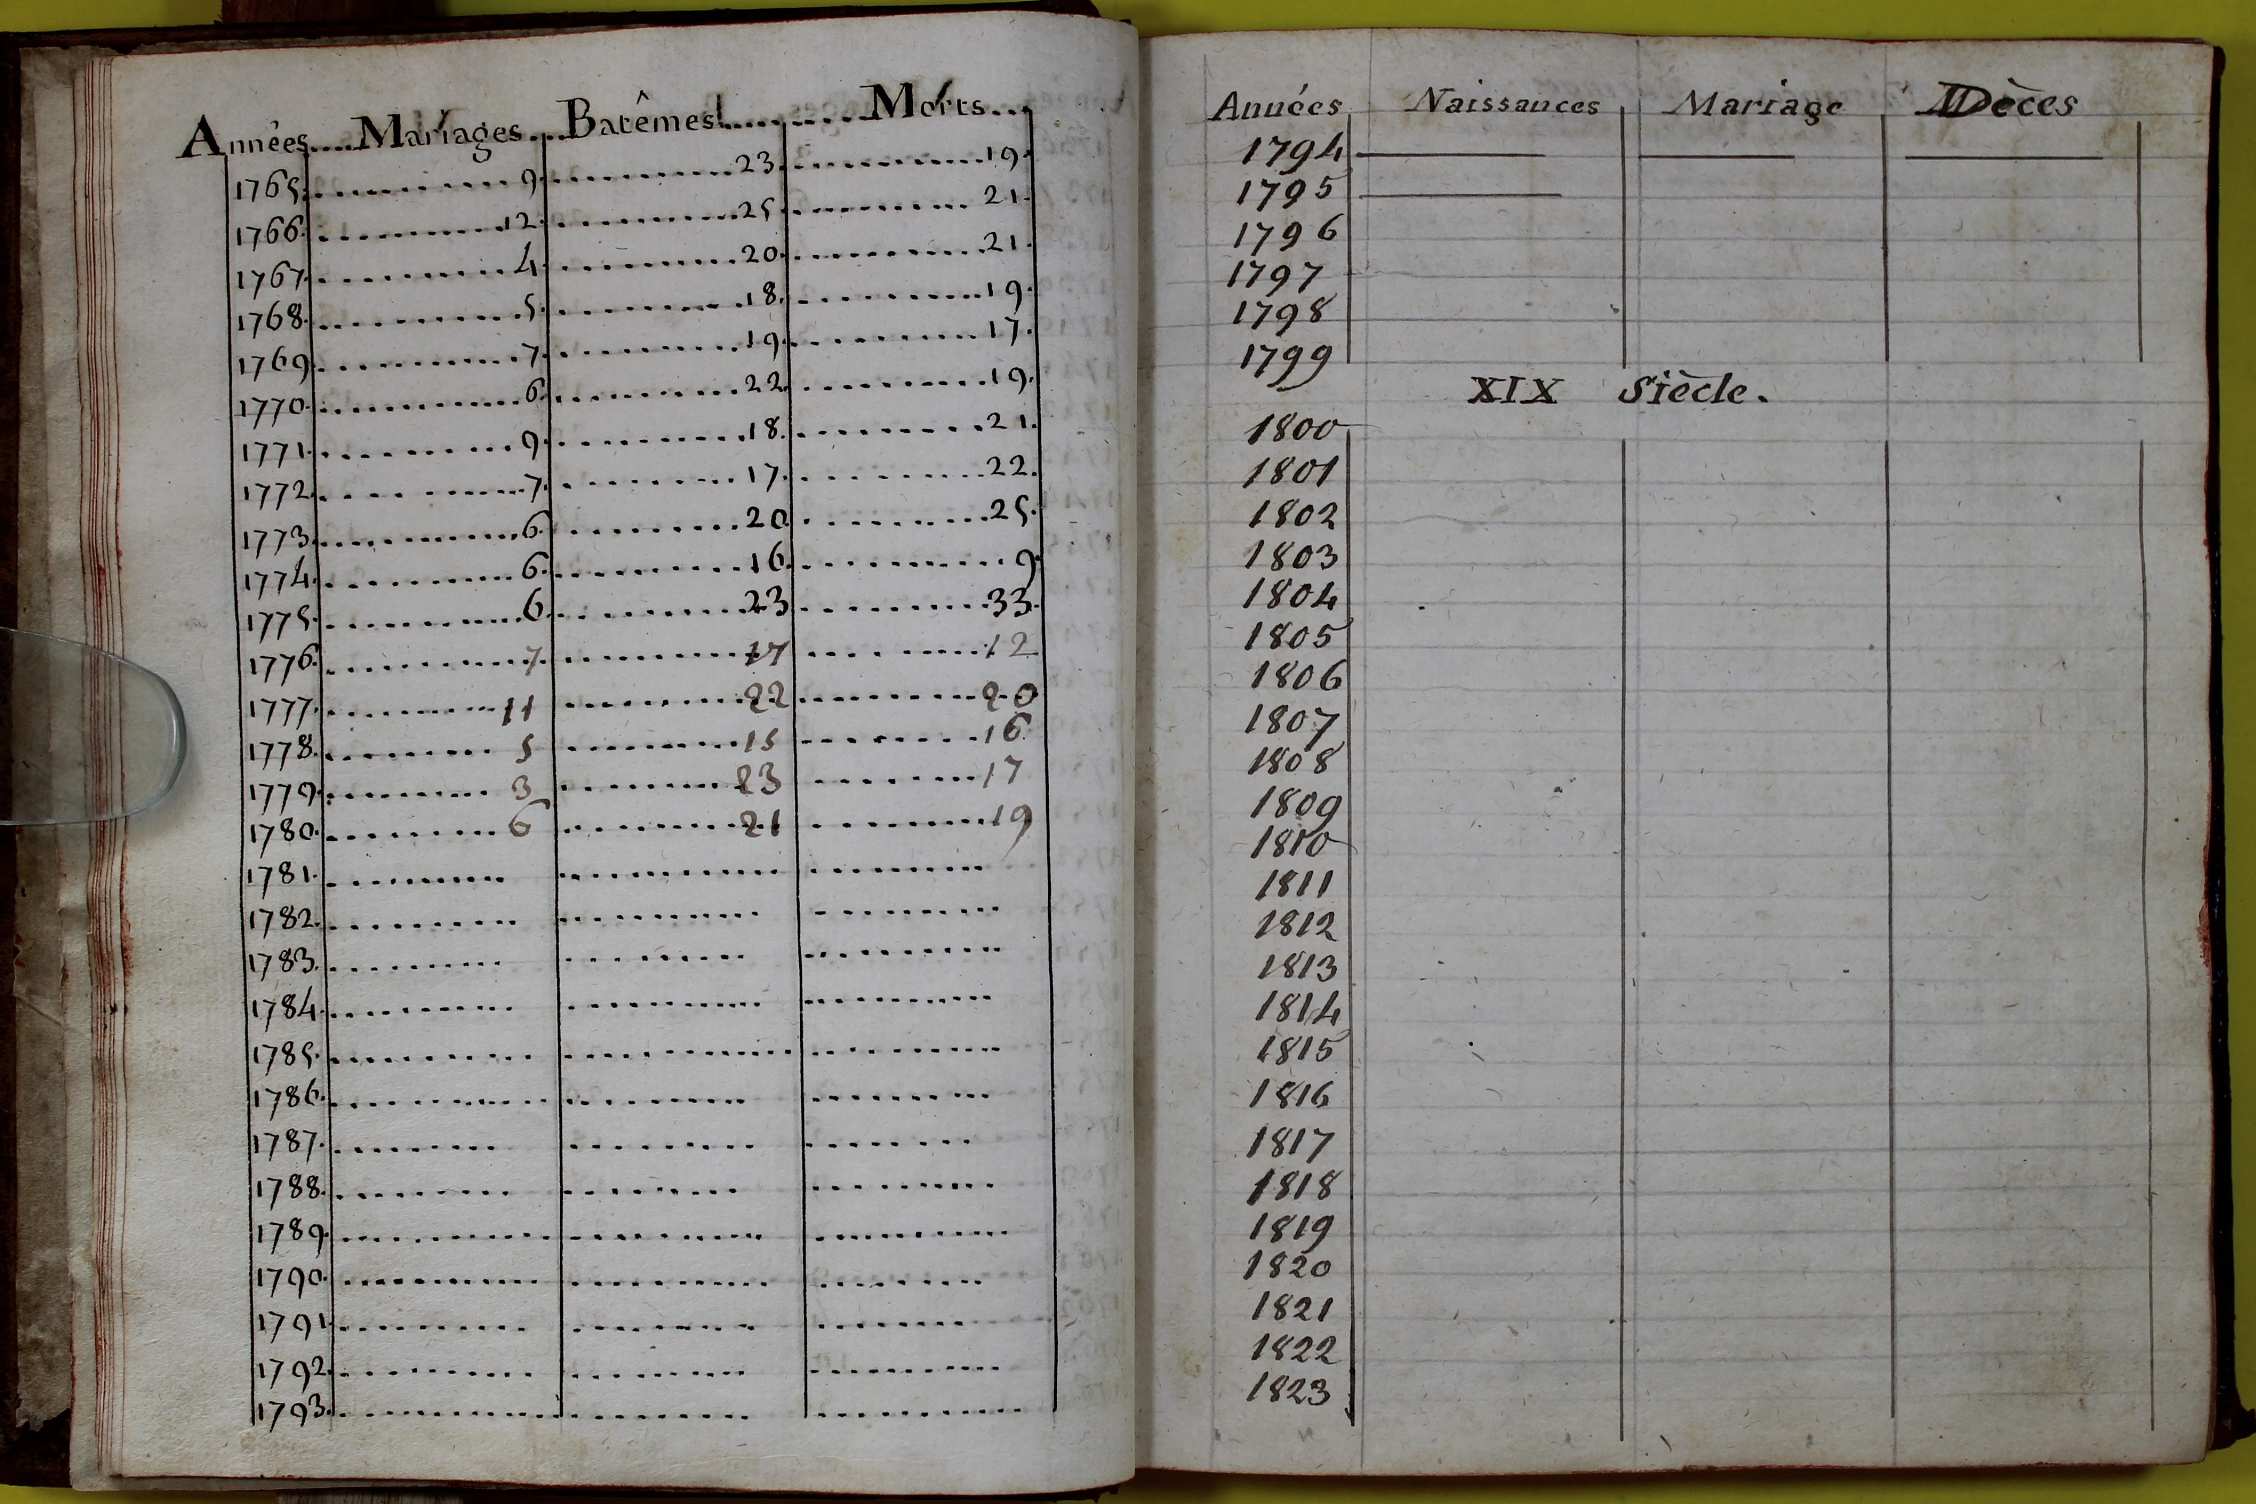 Années Mariages Batêmes Morts
1765. 9. 23. 19.
1766. 12. 25. 21.
1767. 4. 20. 21.
1768. 5. 18. 19.
1769. 7. 19. 17.
1770. 6. 22. 19.
1771. 9. 18. 21.
1772. 7. 17. 22.
1773. 6. 20. 25.
1774. 6. 16. 9.
1775. 6. 23 33.
1776. 7. 17 12
1777. 11 22 20
1778. 5 15 16
1779. 3 23 17
1780. 6 21 19
1781.
1782.
1783.
1784.
1785.
1786.
1787.
1788.
1789.
1790.
1791.
1792.
1793.
Années Naissances Mariage Dèces
1794
1795
1796
1797
1798
1799
XIX Siècle.
1800
1801
1802
1803
1804
1805
1806
1807
1808
1809
1810
1811
1812
1813
1814
1815
1816
1817
1818
1819
1820
1821
1822
1823